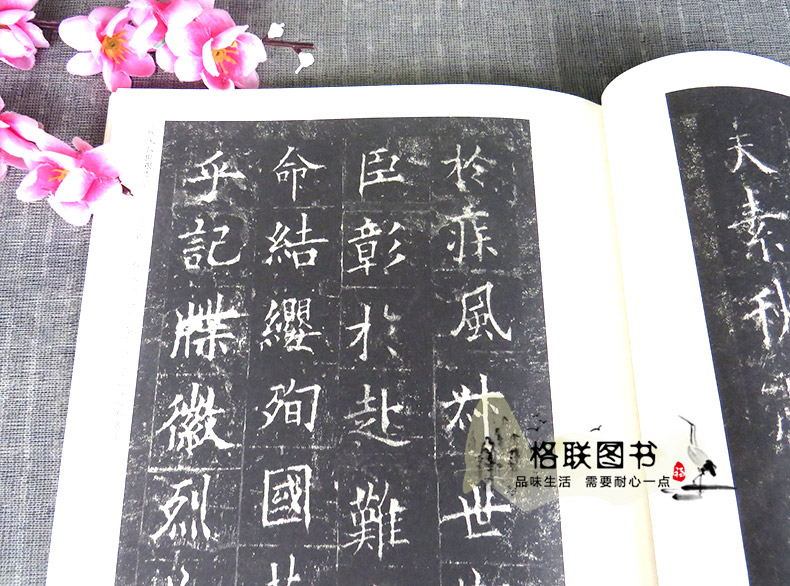 夫素秋
於疾風叔世
臣彰於赴難
命結纓殉國
乎記牒徽烈
格联图书
品味生活 需要耐心一点